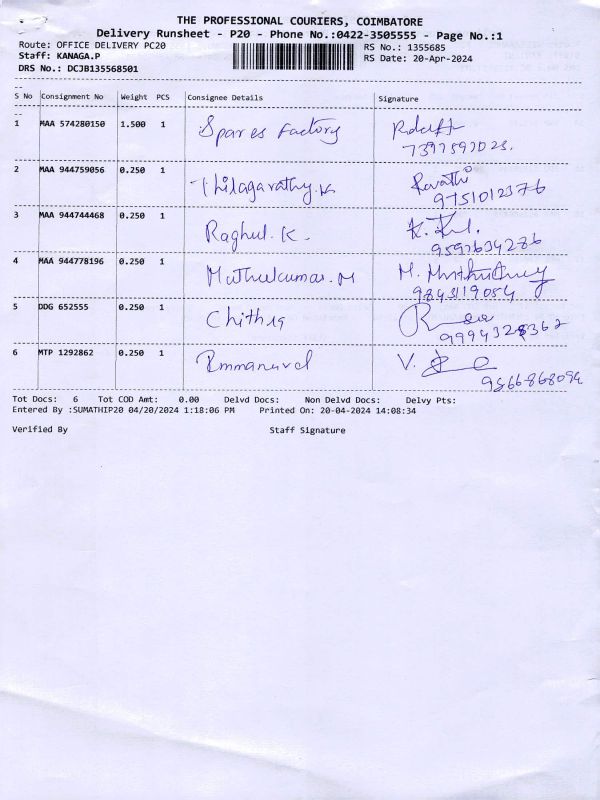 THE PROFESSIONAL COURIERS, COIMBATORE
Delivery Runsheet - P20 - Phone No.:0422-3505555 - Page No.:1
Route: OFFICE DELIVERY PC20
RS No.: 1355685
Staff: KANAGA.P
RS Date: 20-Apr-2024
DRS No.: DCJB135568501
S No Consignment No Weight PCS Consignee Details Signature
1 MAA 574280150 1.500 1 Spares Factory
2 MAA 944759056 0.250 1 Thilagarathy.K Revathi
9751012376
3 MAA 944744468 0.250 1 Raghul.K.
9597634286
4 MAA 944778196 0.250 1 Muthukumar.M
9843119054
5 DDG 652555 0.250 1 Chithra
9994328362
6 MTP 1292862 0.250 1 Emmanuvel V.
9566868094
Tot Docs: 6 Tot COD Amt: 0.00 Delvd Docs: Non Delvd Docs: Delvy Pts:
Entered By :SUMATHIP20 04/20/2024 1:18:06 PM Printed On: 20-04-2024 14:08:34
Verified By Staff Signature